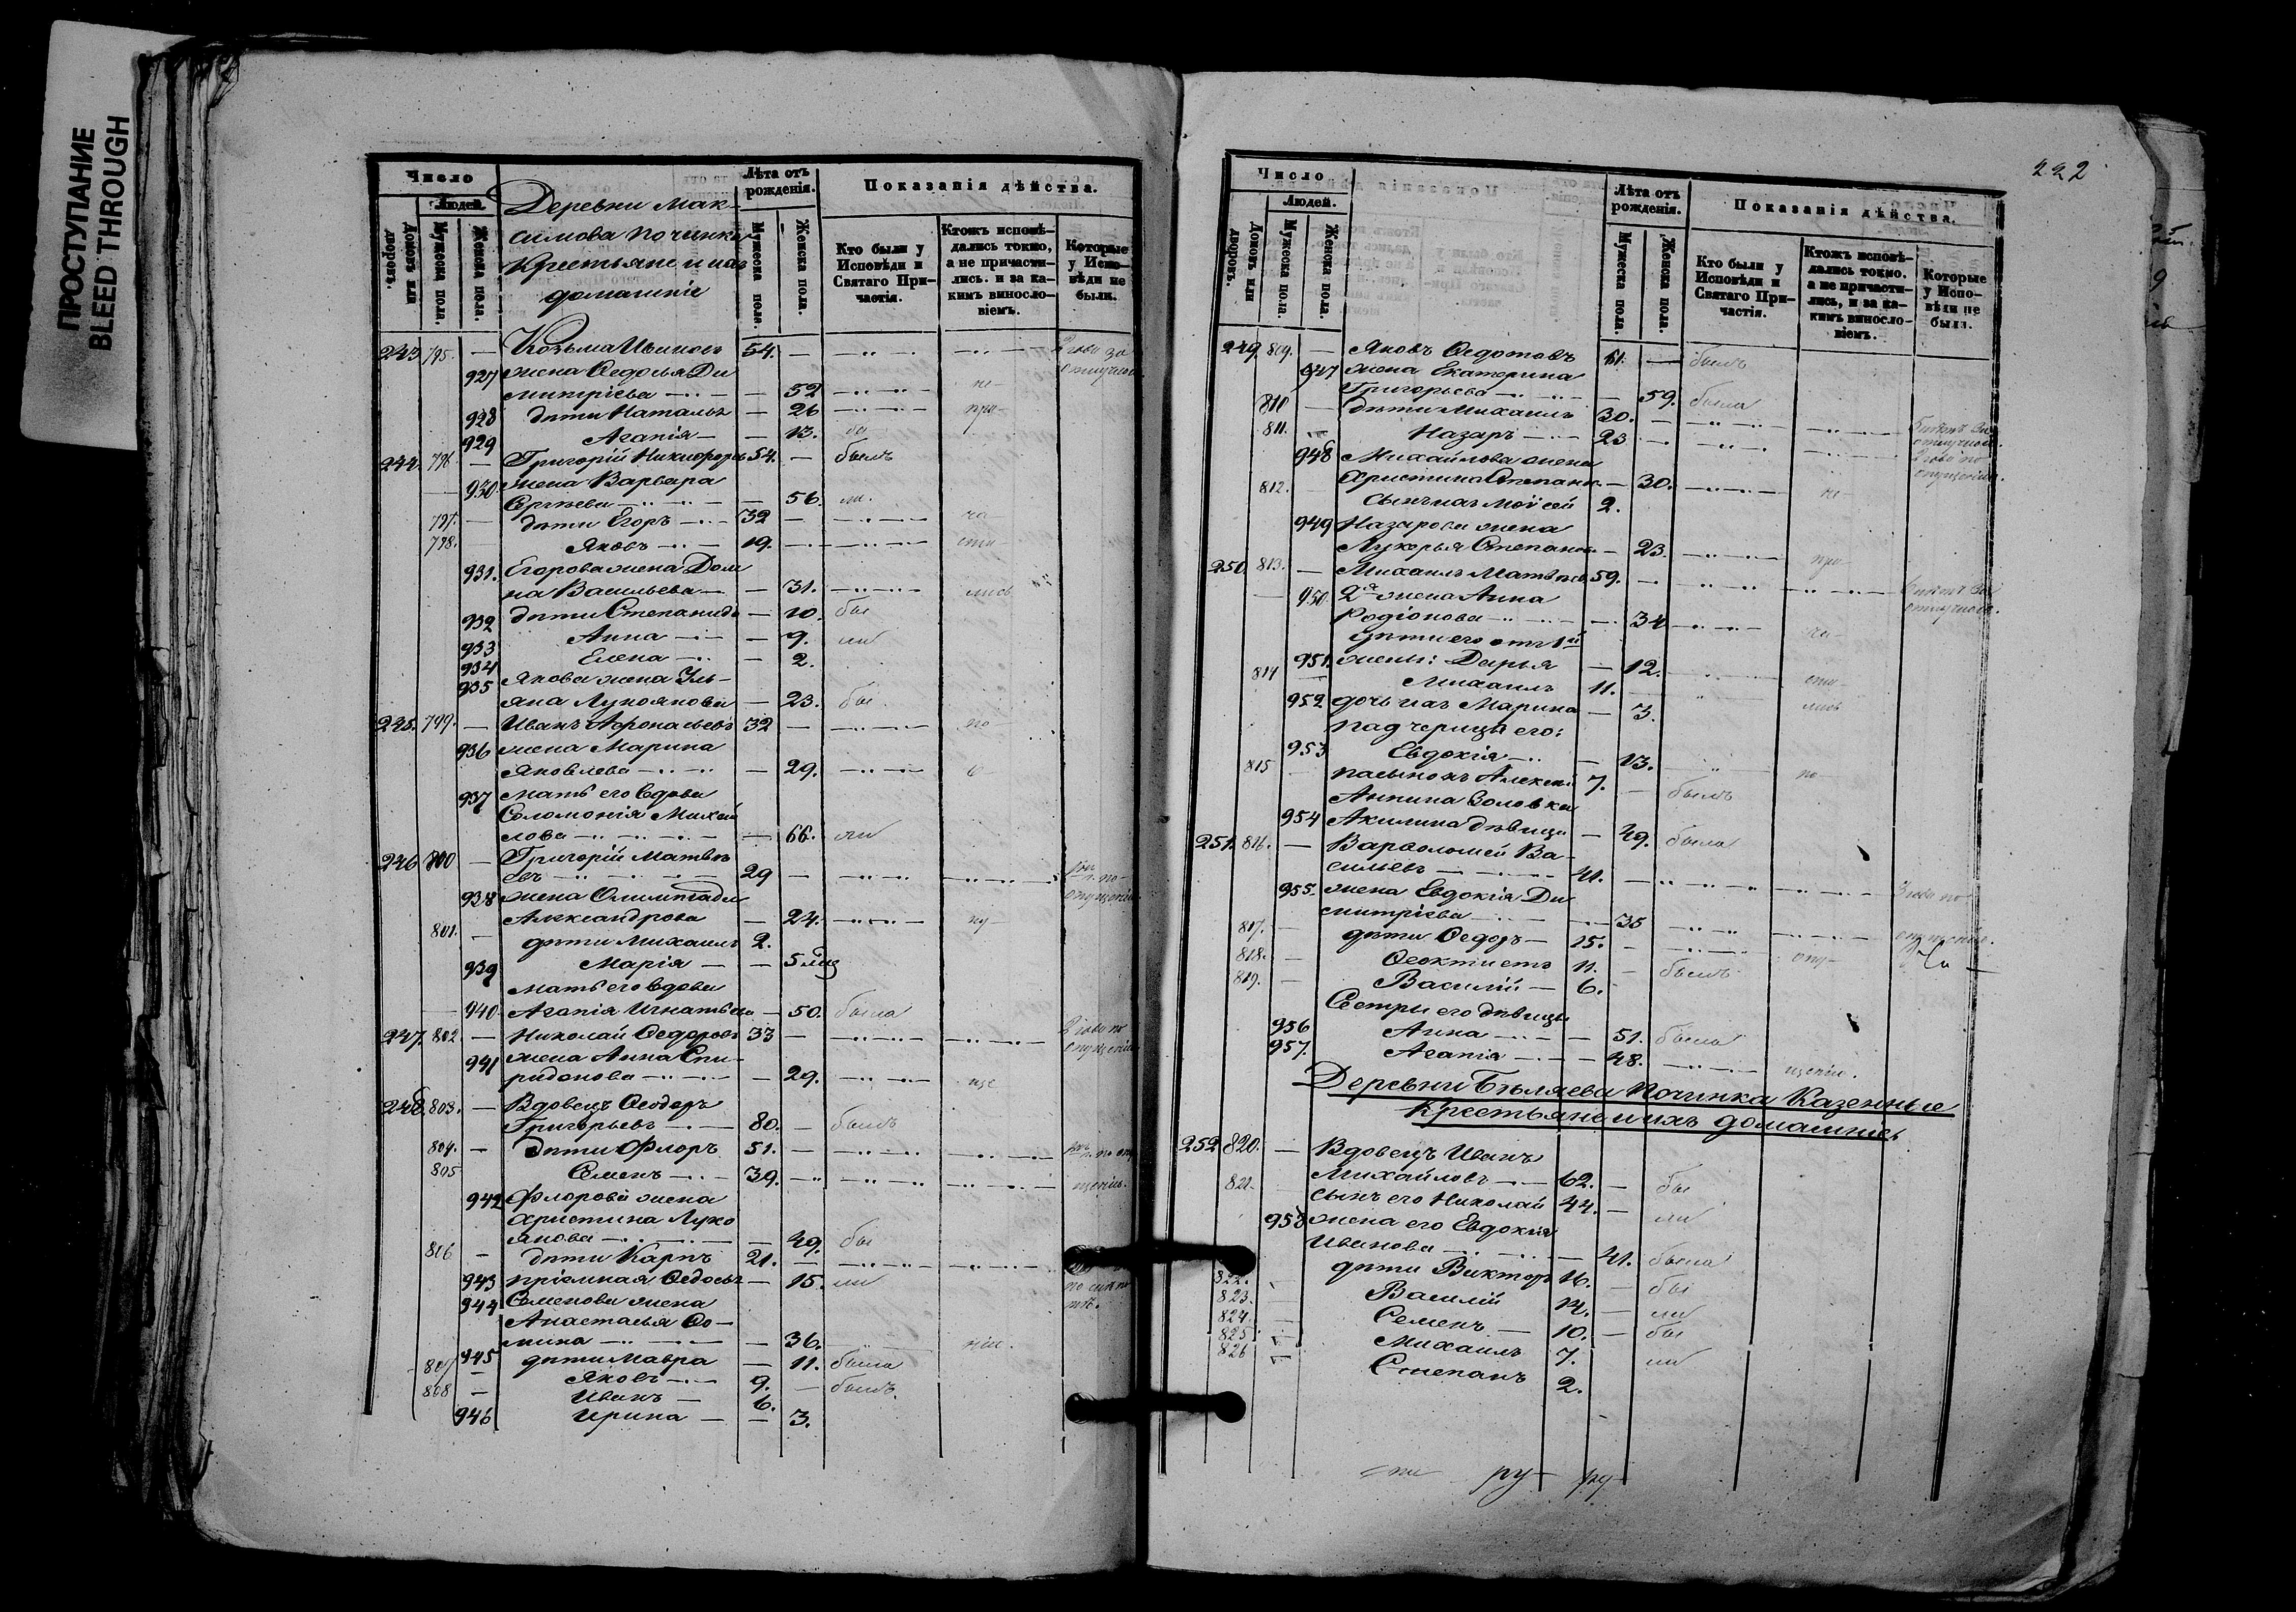 ПРОСТУПАНИЕ
BLEED THROUGH
Число
Людей.
Домовъ или дворовъ.
Мужеска пола.
Женска пола.
Деревни Мак-
симова починка
Крестьяне и ихъ
домашніе
Лѣта отъ рожденія.
Мужеска пола.
Женска пола.
Показанія дѣйства.
Кто были у Исповѣди и Святаго Причастія.
Ктожъ исповѣдались токмо, а не причастились. и за какимъ винословіемъ.
Которые у Исповѣди не были.
243 795. — Козьма Ивановъ 54. —
927 жена Ѳедосья Ди
митріева — 52
928 дѣти Наталья — 26
929 Агапія — 13.
244. 796 — Григорій Никифоровъ 54. — былъ
930 жена Варвара
Сергѣева — 56.
797. — дѣти Егоръ 32 —
798. Яковъ 19. —
931. Егорова жена Дом
на Васильева — 31.
932 дѣти Степанида — 10. бы
933 Анна — 9. ли
934 Елена — 2.
935 Якова жена Уль-
яна Лукоянова — 23. бы
245. 799. — Иванъ Афонасьевъ 32 —
936 жена Марина
Яковлева — 29.
937 мать его вдова
Соломонія Михай
лова — 66. ли
246 800 — Григорій Матвѣ
евъ 29 —
938 жена Олимпіада
Александрова — 24.
801. — дѣти Михаилъ 2.
939 Марія — 5
мать его вдова
940 Агапія Игнатьева — 50. была
247. 802. — Николай Ѳедоровъ 33 —
941 жена Анна Спи-
ридонова — 29.
248 803. — Вдовецъ Ѳеодоръ
Григорьевъ 80. — былъ
804. — дѣти Флоръ 51. —
805 Семенъ 39. —
942 Флорова жена
Христина Луко
янова — 49. бы
806 — дѣти Карпъ 21. —
943 пріемная Ѳедосья — 15. ли
944 Семенова жена
Анастасья Ѳо-
мина — 36.
945 дѣти Мавра — 11. была
807 — Яковъ 9. — былъ
808 — Иванъ 6.
946 Ирина — 3.
222
Число
Людей.
Домовъ или дворовъ.
Мужеска пола.
Женска пола.
Лѣта отъ рожденія.
Мужеска пола.
Женска пола.
Показанія дѣйства.
Кто были у Исповѣди и Святаго Причастія.
Ктожъ исповѣдались токмо. а не причастились, и за какимъ винословіемъ.
Которые у Исповѣди не были.
249 809. — Яковъ Ѳедотовъ 61. — былъ
947 жена Екатерина
Григорьева — 59. была
810 — дѣти Михаилъ 30. —
811. Назаръ 23 —
948 Михайлова жена
Христина Степанова — 30.
812. сынъ ихъ Моисей 2.
949 Назарова жена
Лукерья Степанова — 23.
250 813. — Михаилъ Матвѣевъ 59. —
950 2я жена Анна
Родіонова — 34
дѣти его отъ 1й
951. жены: Дарья — 12.
814 Михаилъ 11. —
952 дочь ихъ Марина — 3.
падчерица его:
953 Евдокія — 13.
815 — пасынокъ Алексѣй 7. — былъ
Аннина золовка
954 Акилина дѣвица — 49. была
251. 816. — Варѳоломей Ва-
сильевъ 41. —
955. жена Евдокія Ди
митріева — 35
817. — дѣти Ѳедоръ 15. —
818. — Ѳеоктистъ 11. — былъ
819. — Василій 6.
Сестры его дѣвицы
956 Анна — 51. была
957. Агапія — 48.
Деревни Бѣляева Починка Казенные
Крестьяне и ихъ домашніе
252 820. — Вдовецъ Иванъ
Михайловъ 62. — бы
821. сынъ его Николай 44. — ли
958 жена его Евдокія
Иванова — 41. была
822. дѣти Викторъ 16. — бы
823. — Василій 14. — ли
824. — Семенъ 10. — бы
825 Михаилъ 7. ли
826 Степанъ 2.